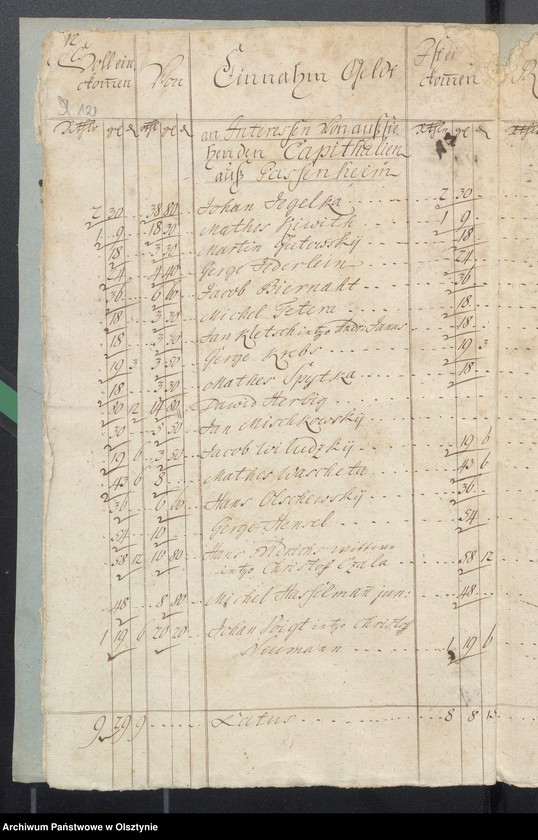 Soll ein
komen
Von
Einnahm Geldt
Ist ein
komen
an Interessen von außste
henden Capithalien
auß Passenheim
2 30 38 80 Johan Jegelka 2 30
1 9 18 30 Mathes Kiwith 1 9
18 3 30 Martin Gutowskÿ 18
24 4 40 Gerge Federlein 24
36 6 60 Jacob Biernakt 36
18 3 30 Michel Petera 18
18 3 30 Jan Kletsch intzo 18
19 3 3 50 Gerge Krebs 19 3
18 3 30 Mathes Spytka 18
80 12 14 80 Dawid Herbig
30 Jan Mischkowskÿ
19 6 3 50 Jacob Wiludzkÿ 19 6
43 6 8 Mathes Wascheta 43 6
36 6 60 Hans Olschewskÿ 36
54 10 Gerge Hensel 54
58 12 10 80 Hans Fridrichs wittwe
intzo Christof Czala 58 12
48 8 80 Michel Hasselman jun: 48
1 19 6 20 20 Johan Voigt intzo Christof
Neumann 1 19 6
9 29 9 Latus 8 8 15
Archiwum Państwowe w Olsztynie